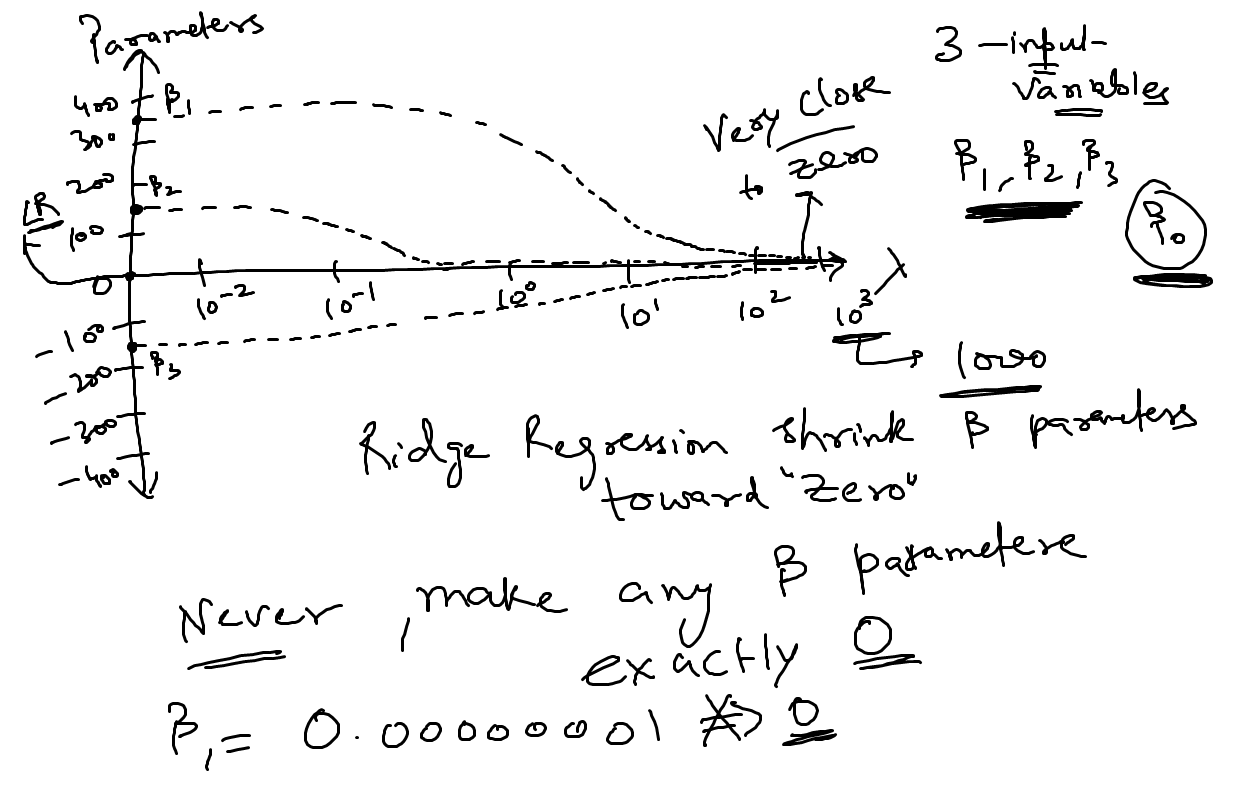 Parameters
400 β₁
300
200 β₂
LR
100
0
-100
-200 β₃
-300
-400
10⁻² 10⁻¹ 10⁰ 10¹ 10² 10³ λ
Very close
to zero
3 -input-
Variables
β₁, β₂, β₃
β₀
1000
Ridge Regression shrink β parameters
toward "Zero"
Never, make any β parametere
exactly 0
β₁ = 0.00000001 ⇏ 0